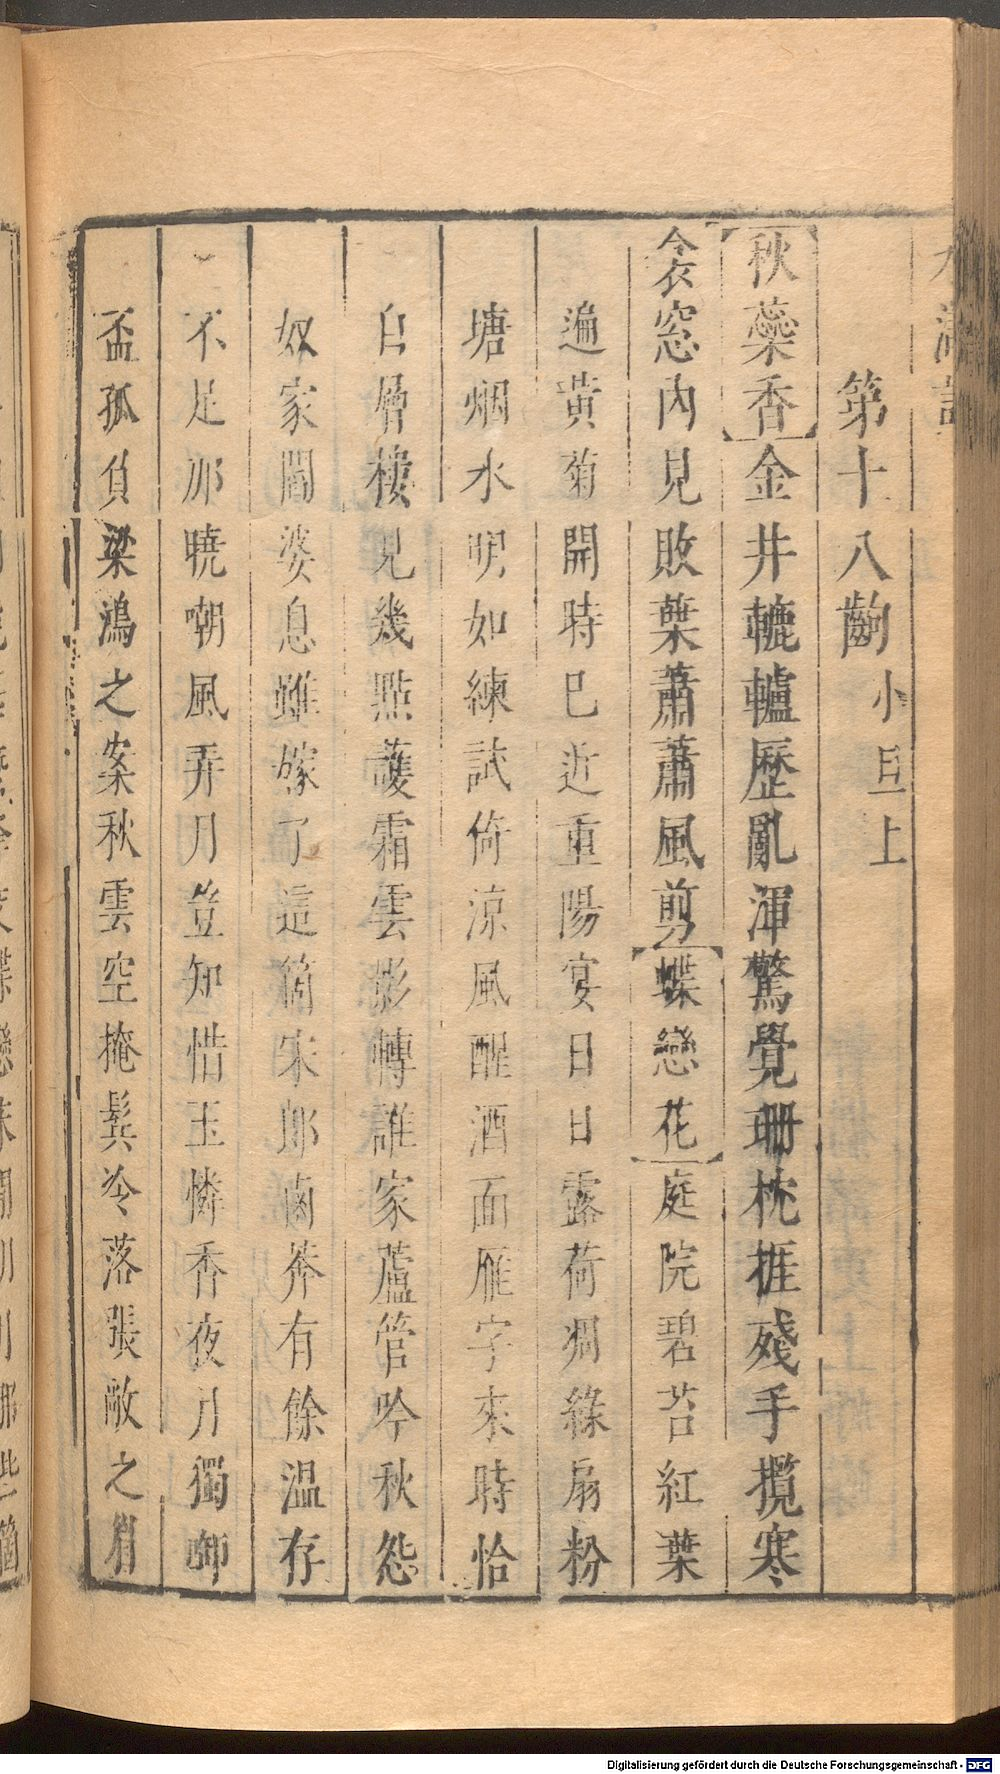 第十八齣 小旦上
【秋蘂香】金井轆轤歷亂渾驚覺珊枕捱殘手攬寒
衾窓內見敗葉蕭蕭風剪【蝶戀花】庭院碧苔紅葉
遍黃菊開時已近重陽宴日日露荷凋綠扇粉
塘烟水明如練試倚涼風醒酒面雁字來時恰
白層樓見幾點護霜雲影轉誰家蘆管吟秋怨
奴家閻婆息雖嫁了這箇宋郎鹵莽有餘温存
不足那曉嘲風弄月豈知惜玉憐香夜月獨啣
盃孤負梁鴻之案秋雲空掩鬂冷落張敞之眉
Digitalisierung gefördert durch die Deutsche Forschungsgemeinschaft - DFG